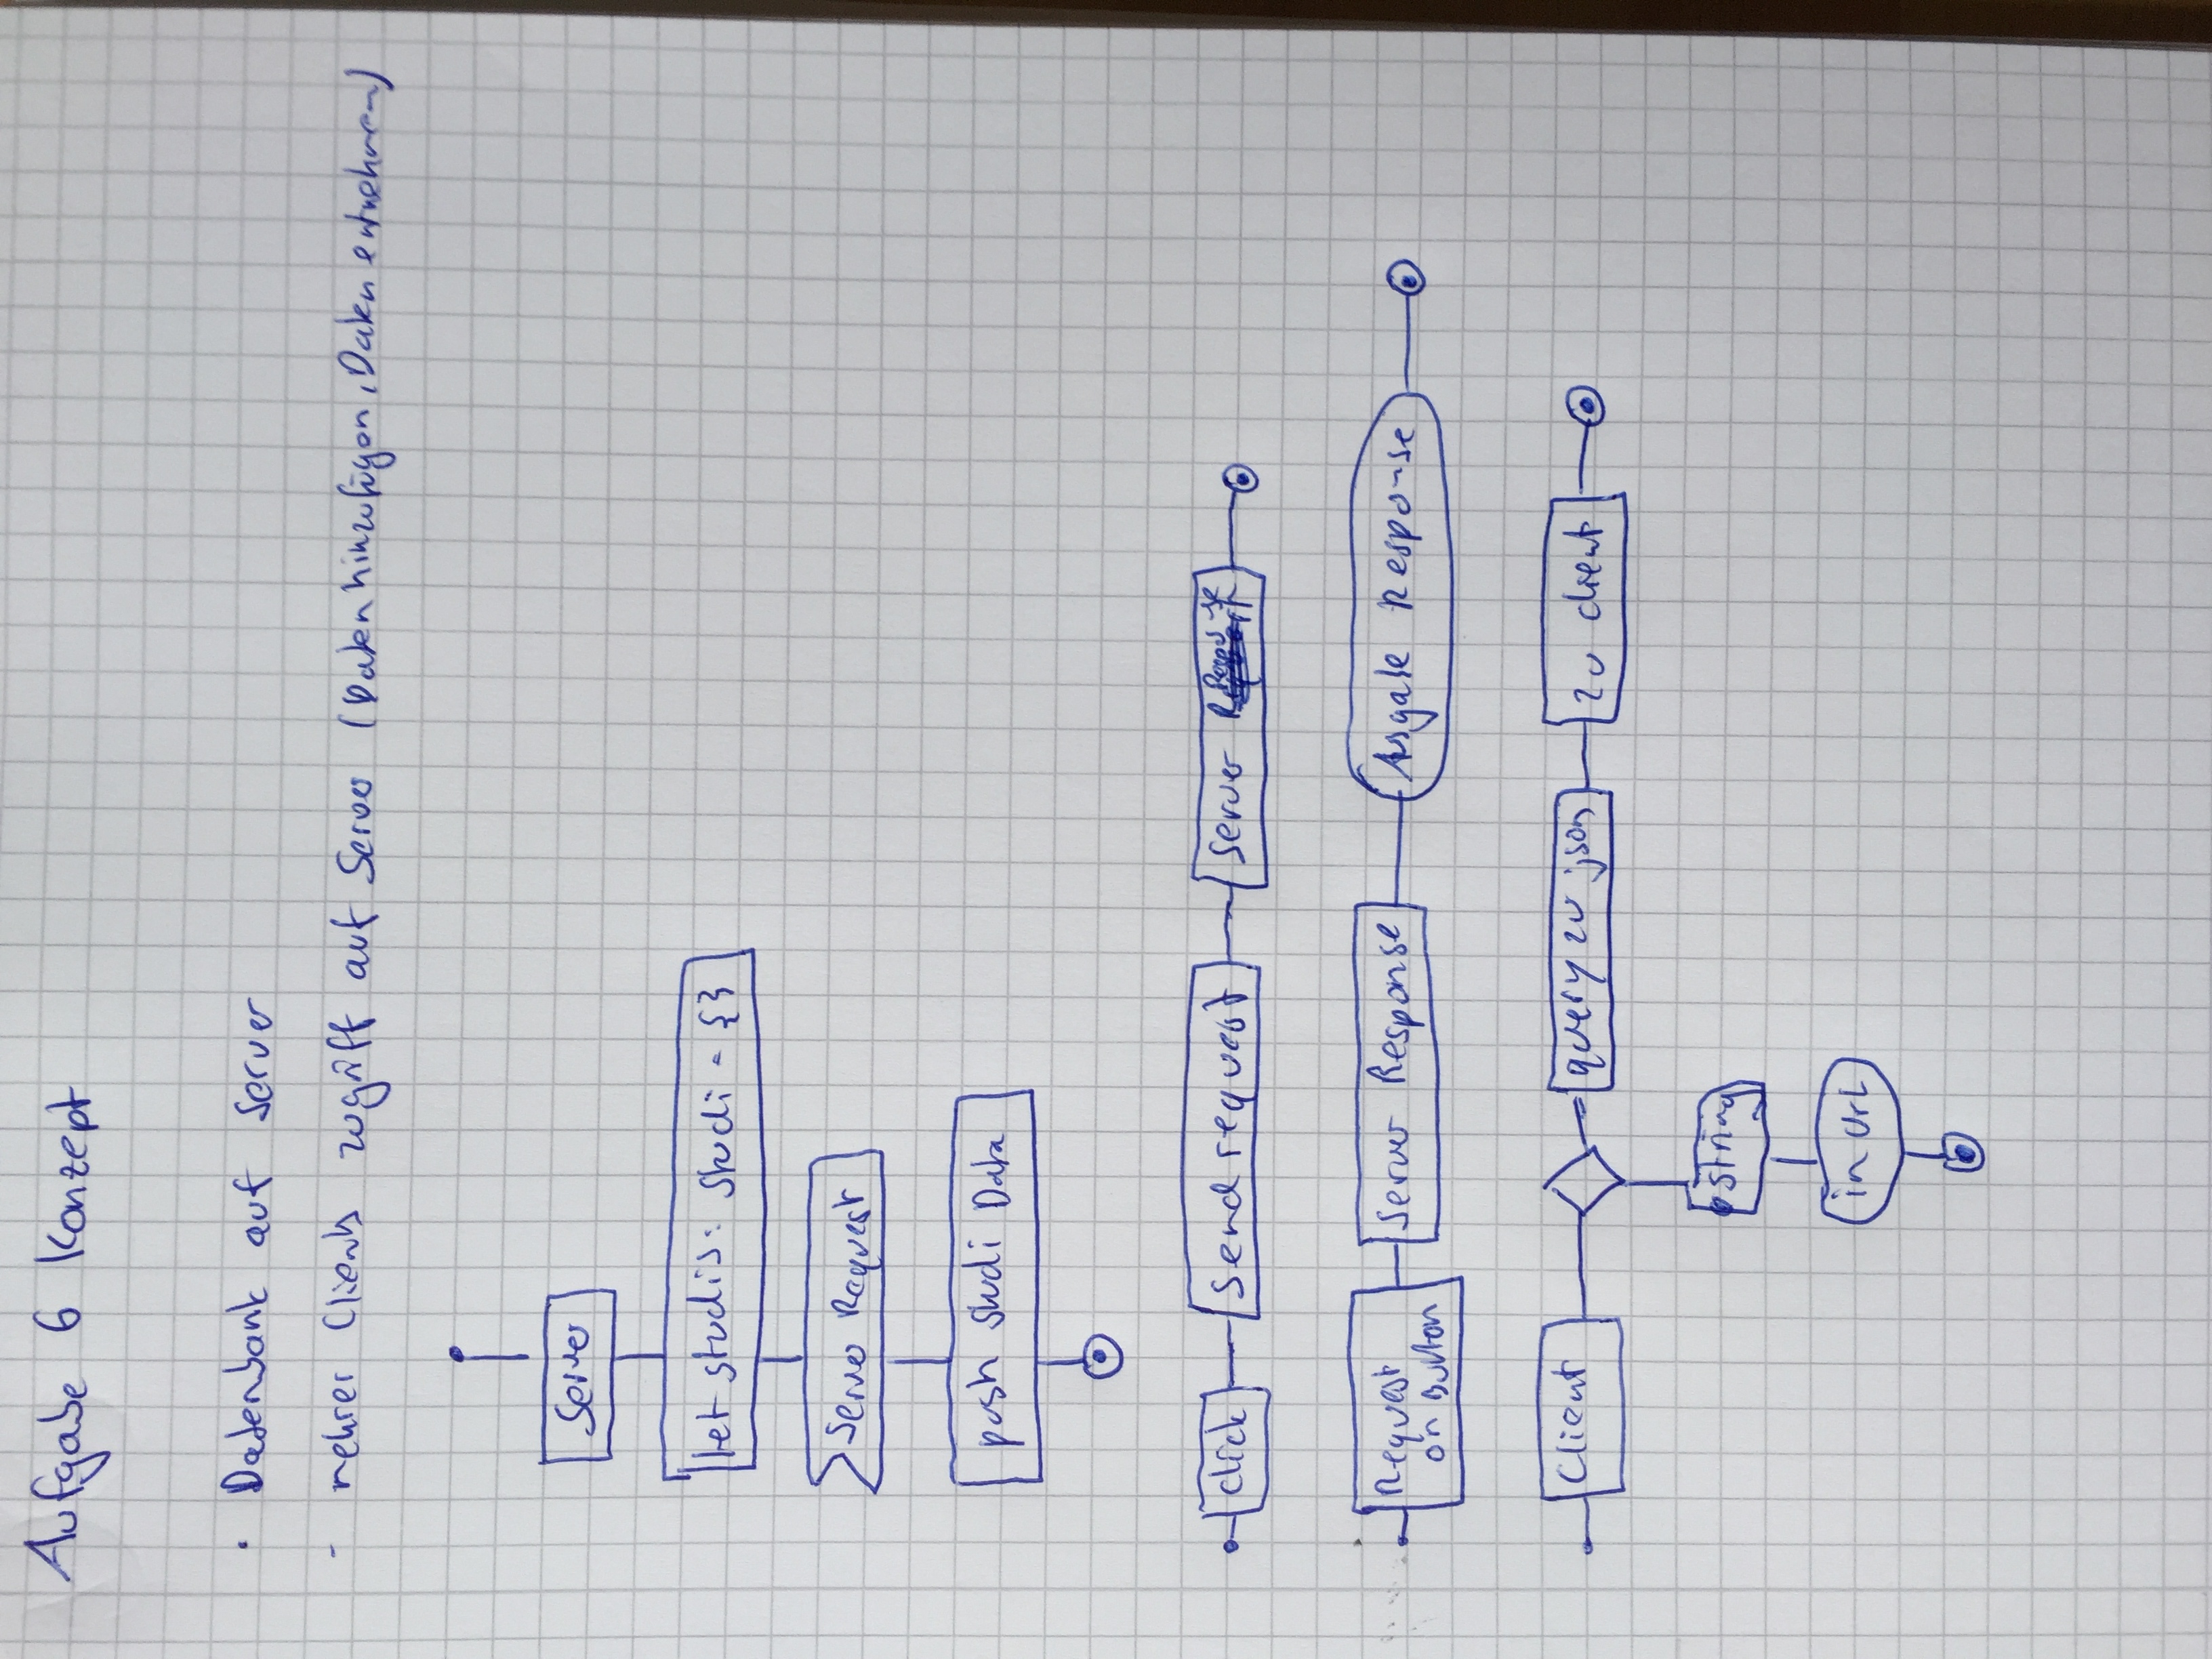 Aufgabe 6 Konzept
· Datenbank auf Server
- mehrer Clients zugriff auf Server (Daten hinzufügen, Daten entnehmen)
Server
let studis: Studi = {}
Server Request
push Studi Data
Click
Send request
Server Response
Request
on Button
Server Response
Ausgabe Response
Client
query zu json
zu client
string
in Url